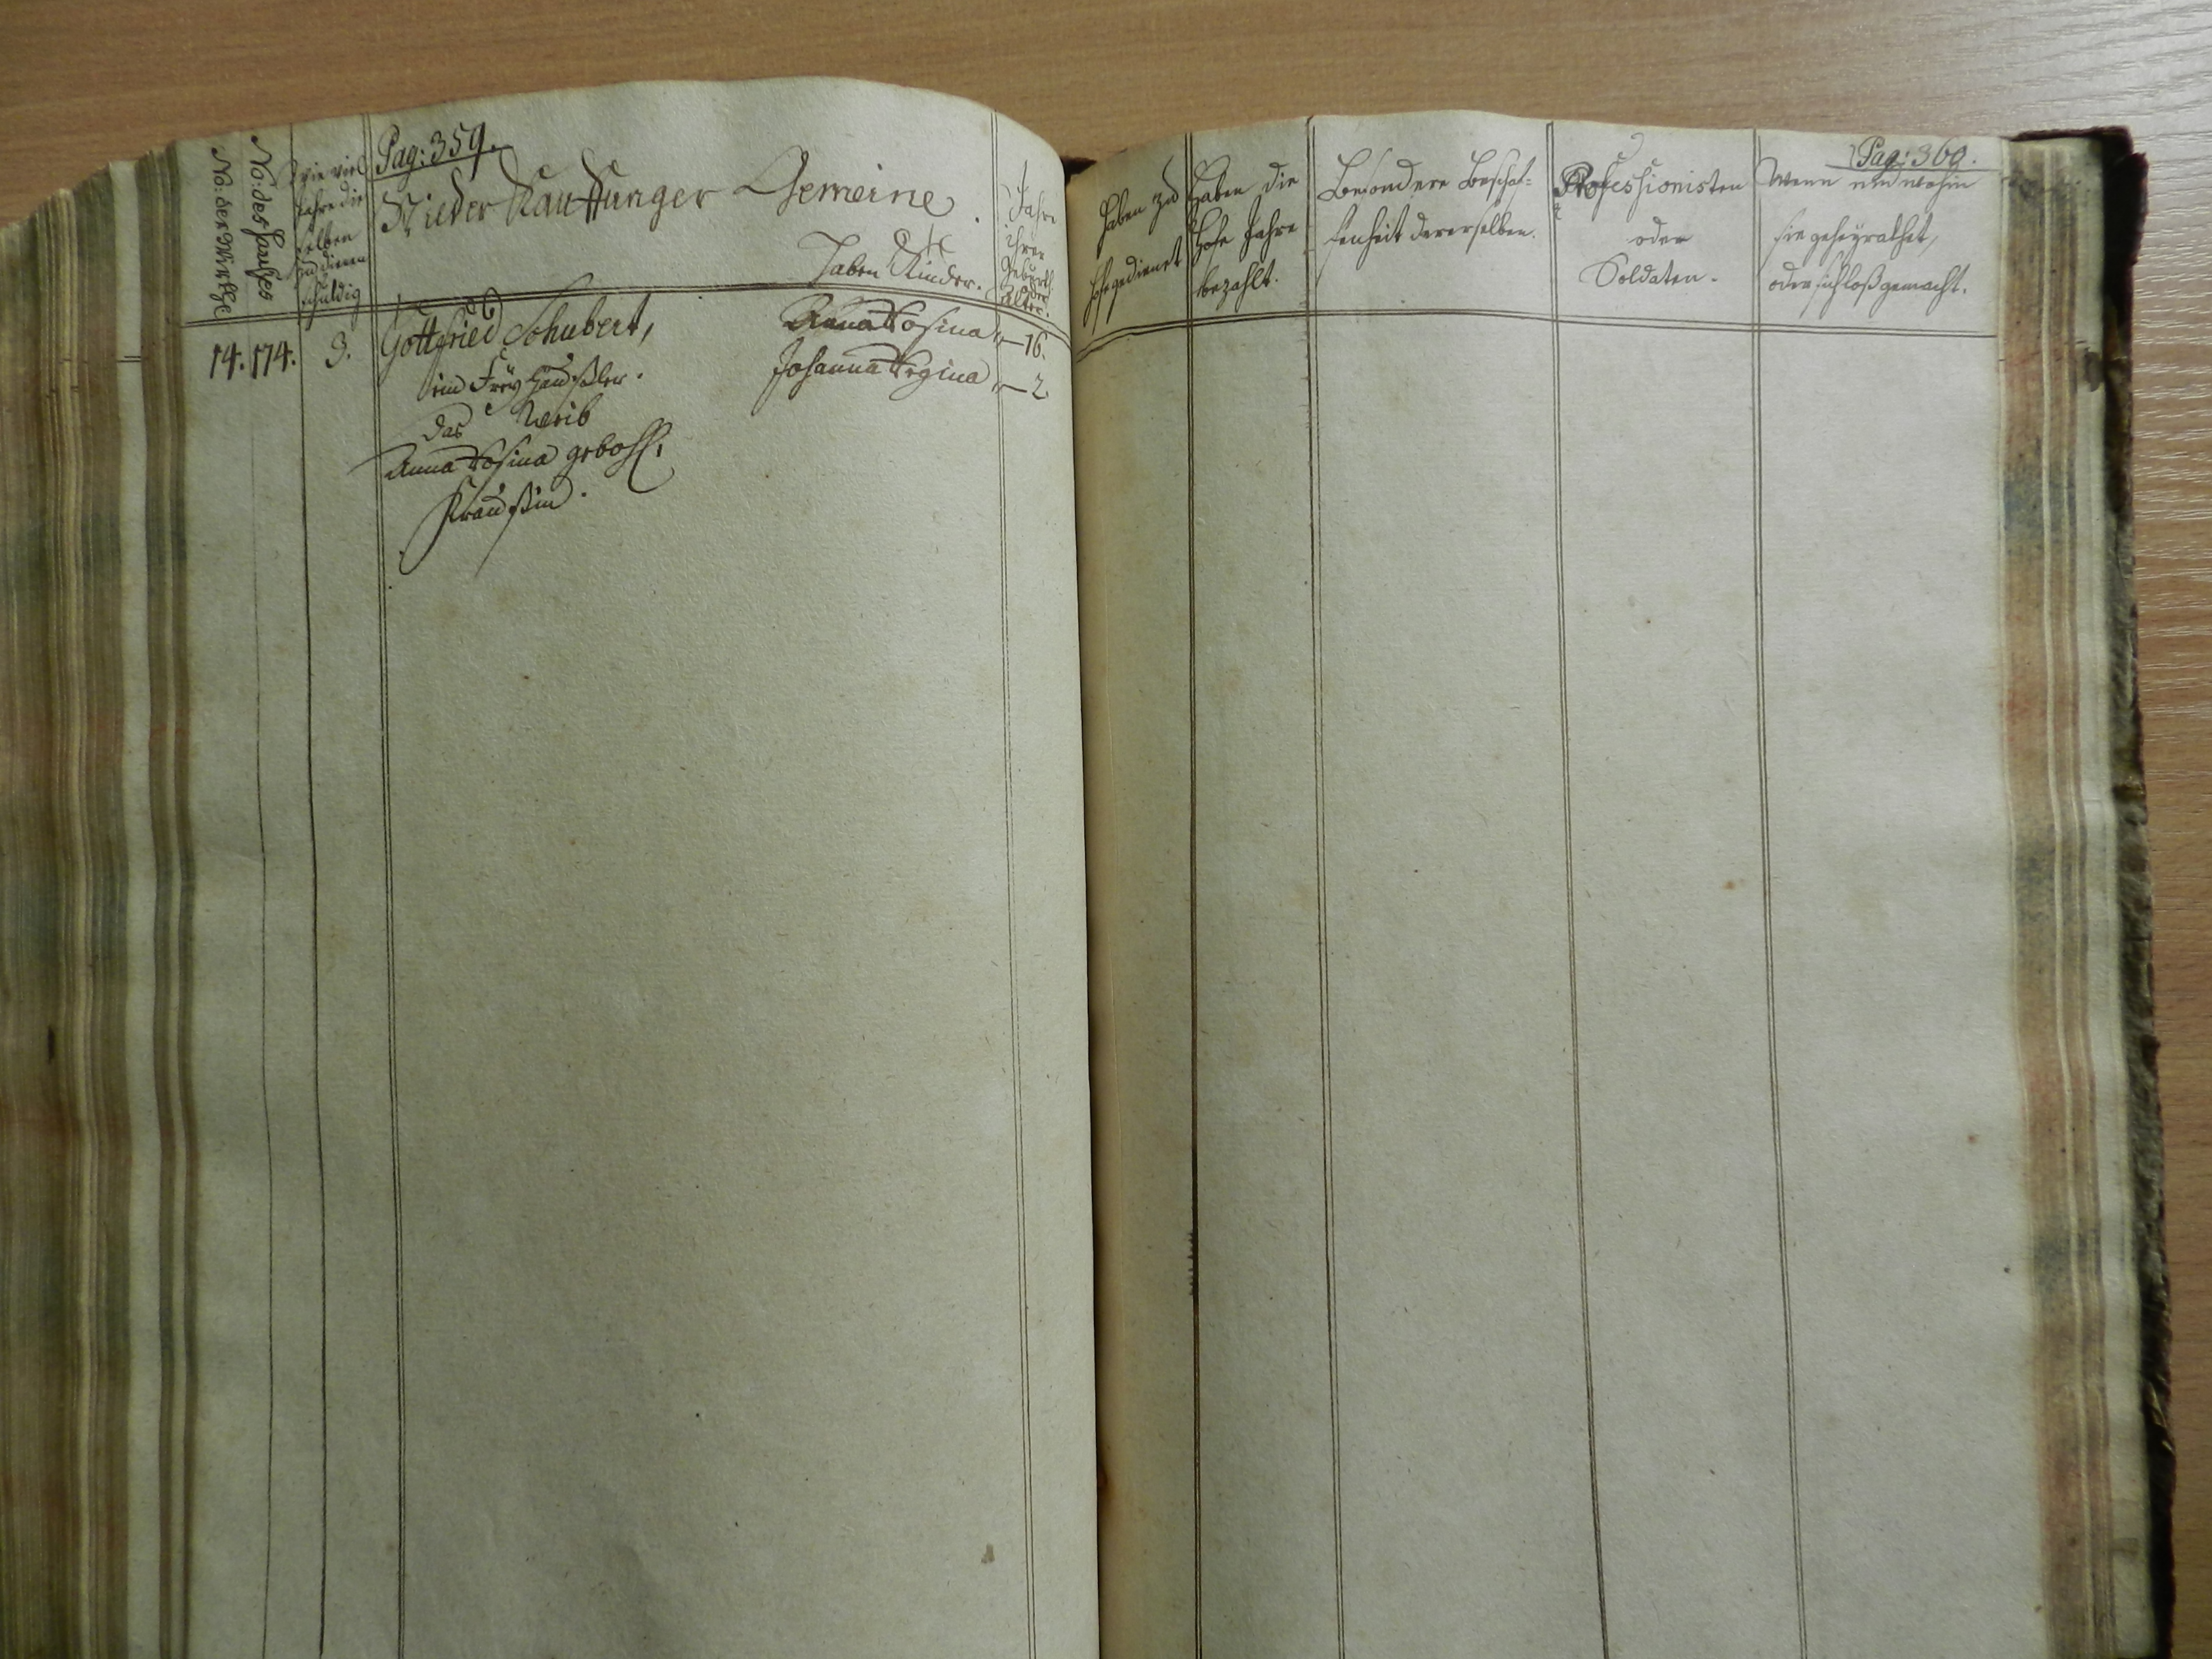 Pag: 359.
No: der Wirthe
No: des Hauses
wie viel
Jahre die
selben
zu dienen
schuldig
Nieder Kauffunger Gemeine.
Haben Kinder.
Jahre
ihrer
Geburth
oder
Alter.
14. 174. 3. Gottfried Schubert, Anna Rosina „—16.
ein Freyhäußler. Johanna Regina „—2.
das Weib
Anna Rosina gebohr.
Kraußin.
Pag: 360.
Haben zu
Hofe gedienet
Haben die
Hofe Jahre
bezahlt.
Besondere Beschaf-
fenheit dererselben.
Professionisten
oder
Soldaten.
Wenn und wohin
sie geheyrathet,
oder sich loß gemacht.